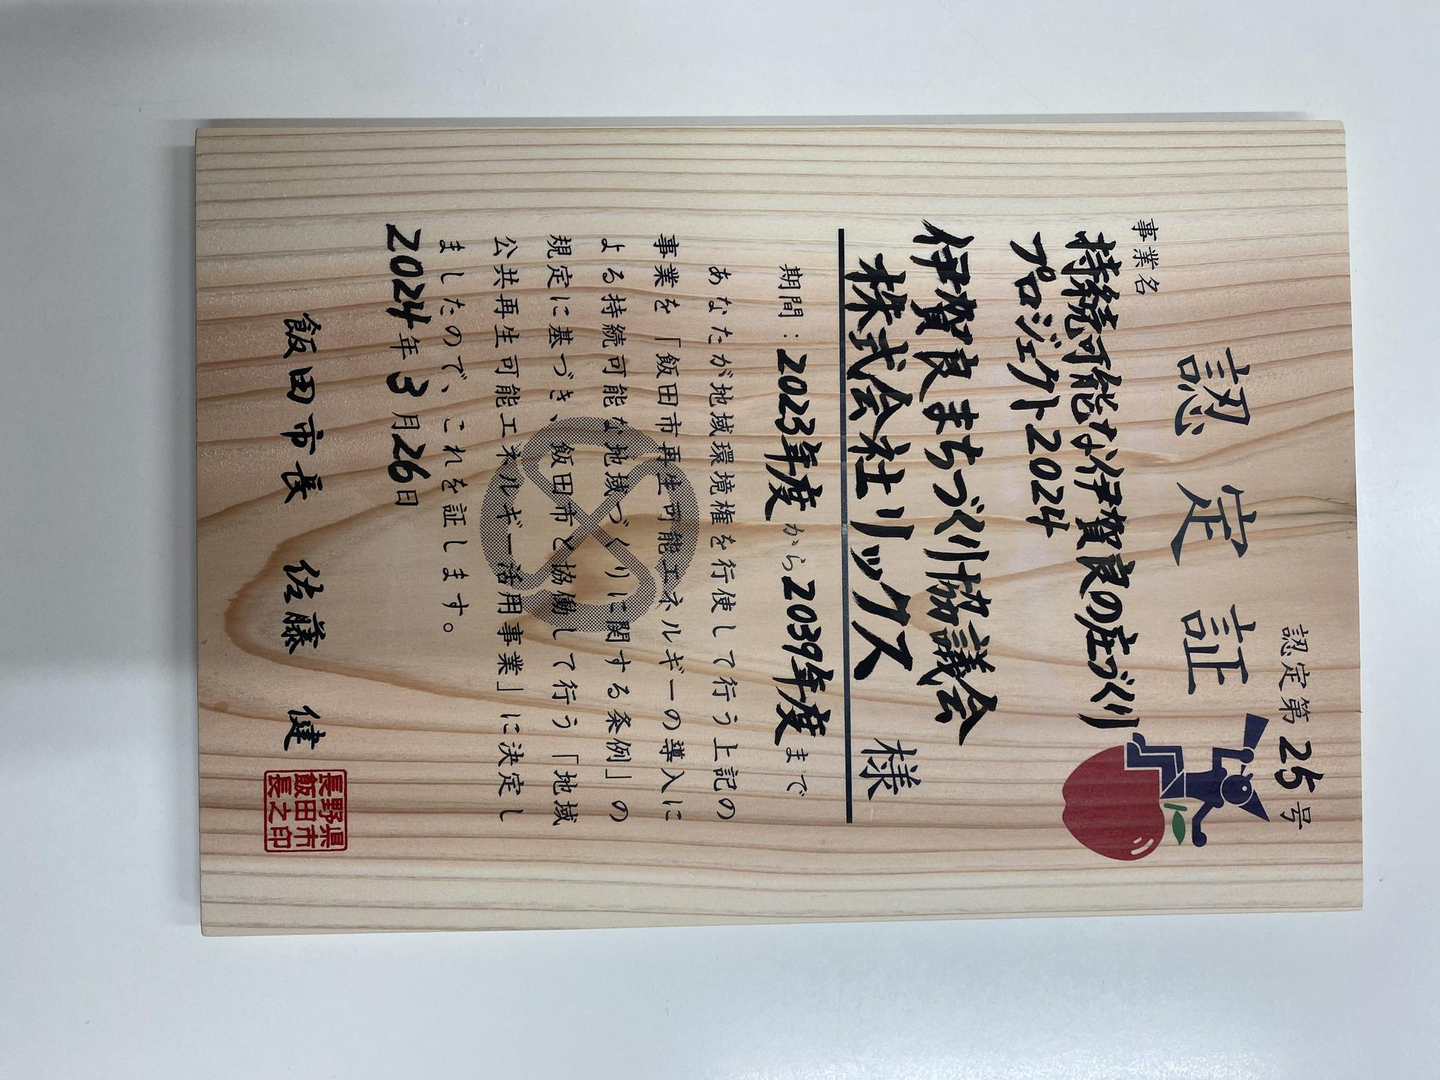 認定第25号
認定証
事業名
持続可能な伊賀良の庄づくり
プロジェクト2024
伊賀良まちづくり協議会
株式会社リックス 様
期間：2023年度から2039年度まで
あなたが地域環境権を行使して行う上記の
事業を「飯田市再生可能エネルギーの導入に
よる持続可能な地域づくりに関する条例」の
規定に基づき、飯田市と協働して行う「地域
公共再生可能エネルギー活用事業」に決定し
ましたので、これを証します。
2024年3月26日
飯田市長 佐藤 健
長野県
飯田市
長之印